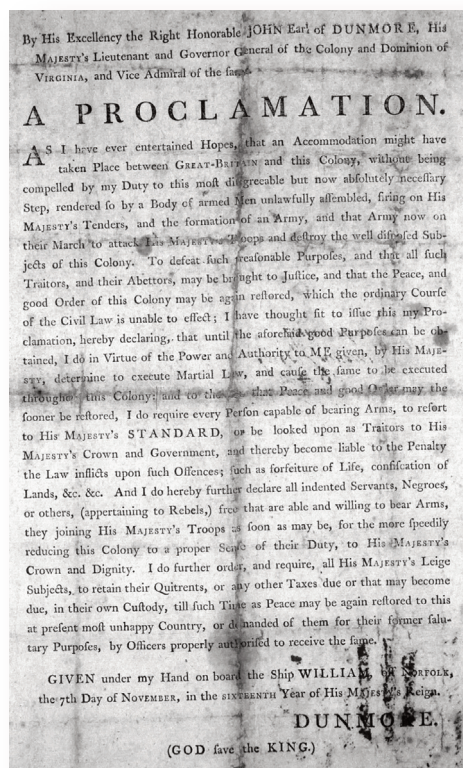 By His Excellency the Right Honorable JOHN Earl of DUNMORE, His
MAJESTY's Lieutenant and Governor General of the Colony and Dominion of
VIRGINIA, and Vice Admiral of the same.
A PROCLAMATION.
AS I have ever entertained Hopes, that an Accommodation might have
taken Place between GREAT-BRITAIN and this Colony, without being
compelled by my Duty to this moſt diſagreeable but now abſolutely neceſſary
Step, rendered ſo by a Body of armed Men unlawfully aſſembled, firing on His
MAJESTY's Tenders, and the formation of an Army, and that Army now on
their March to attack His MAJESTY's Troops and deſtroy the well diſpoſed Sub-
jects of this Colony. To defeat ſuch treaſonable Purpoſes, and that all ſuch
Traitors, and their Abettors, may be brought to Juſtice, and that the Peace, and
good Order of this Colony may be again reſtored, which the ordinary Courſe
of the Civil Law is unable to effect; I have thought fit to iſſue this my Pro-
clamation, hereby declaring, that until the aforeſaid good Purpoſes can be ob-
tained, I do in Virtue of the Power and Authority to ME given, by His MAJE-
STY, determine to execute Martial Law, and cauſe the ſame to be executed
throughout this Colony: and to the end that Peace and good Order may the
ſooner be reſtored, I do require every Perſon capable of bearing Arms, to reſort
to His MAJESTY's STANDARD, or be looked upon as Traitors to His
MAJESTY's Crown and Government, and thereby become liable to the Penalty
the Law inflicts upon ſuch Offences; ſuch as forfeiture of Life, confiſcation of
Lands, &c. &c. And I do hereby further declare all indented Servants, Negroes,
or others, (appertaining to Rebels,) free that are able and willing to bear Arms,
they joining His MAJESTY's Troops as ſoon as may be, for the more ſpeedily
reducing this Colony to a proper Senſe of their Duty, to His MAJESTY's
Crown and Dignity. I do further order, and require, all His MAJESTY's Leige
Subjects, to retain their Quitrents, or any other Taxes due or that may become
due, in their own Cuſtody, till ſuch Time as Peace may be again reſtored to this
at preſent moſt unhappy Country, or demanded of them for their former ſalu-
tary Purpoſes, by Officers properly authoriſed to receive the ſame.
GIVEN under my Hand on board the Ship WILLIAM, by NORFOLK,
the 7th Day of NOVEMBER, in the SIXTEENTH Year of His MAJESTY's Reign.
DUNMORE.
(GOD ſave the KING.)